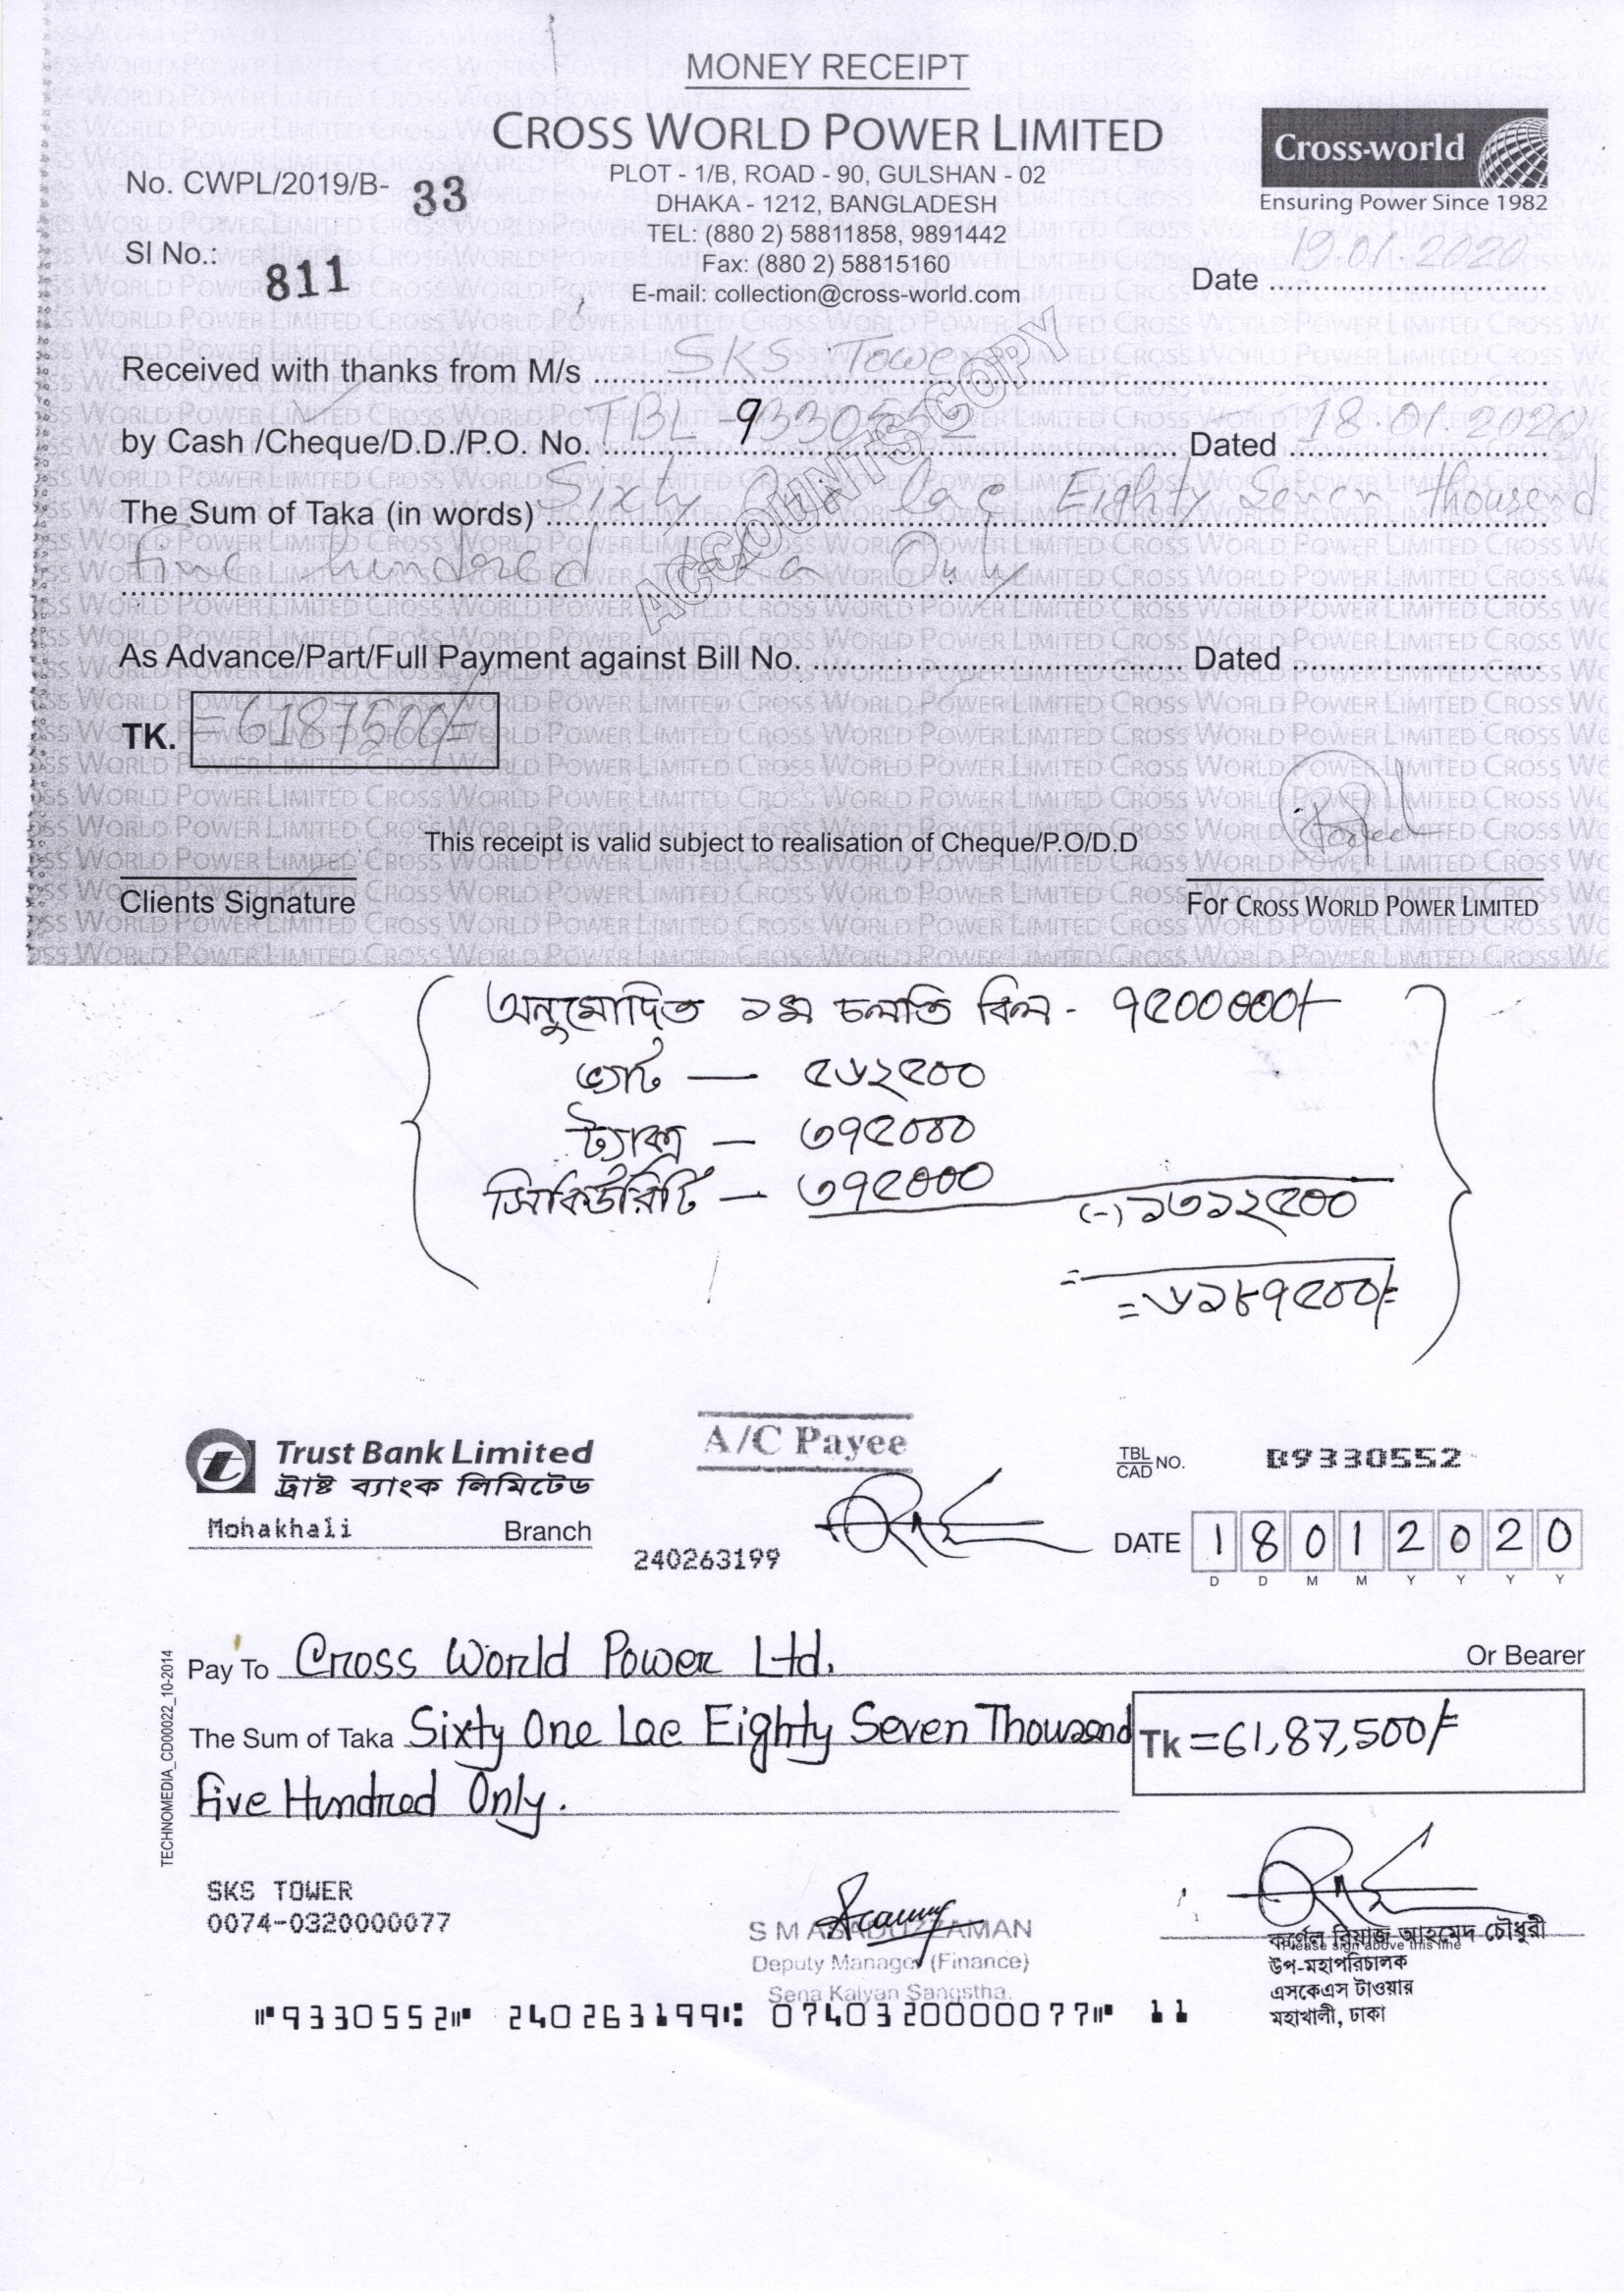 MONEY RECEIPT
CROSS WORLD POWER LIMITED
Cross-world
Ensuring Power Since 1982
No. CWPL/2019/B- 33
PLOT - 1/B, ROAD - 90, GULSHAN - 02
DHAKA - 1212, BANGLADESH
TEL: (880 2) 58811858, 9891442
Sl No.: 811
Fax: (880 2) 58815160
E-mail: collection@cross-world.com
Date 19.01.2020
Received with thanks from M/s SKS Tower
by Cash /Cheque/D.D./P.O. No. TBL-9330552 Dated 18.01.2020
The Sum of Taka (in words) Sixty One lac Eighty Seven thousend
five hundred Taka Only
ACCOUNTS COPY
As Advance/Part/Full Payment against Bill No. Dated
TK. =6187500/=
This receipt is valid subject to realisation of Cheque/P.O/D.D
Clients Signature
For CROSS WORLD POWER LIMITED
অনুমোদিত ১ম চলতি বিল - ৭৫০০০০০/-
ভ্যাট — ৫৬২৫০০
ট্যাক্স — ৩৭৫০০০
সিকিউরিটি — ৩৭৫০০০
(-) ১৩১২৫০০
= ৬১৮৭৫০০/=
Trust Bank Limited
ট্রাষ্ট ব্যাংক লিমিটেড
Mohakhali Branch
A/C Payee
240263199
TBL/CAD NO. B9330552
DATE 18012020
D D M M Y Y Y Y
Pay To Cross World Power Ltd. Or Bearer
The Sum of Taka Sixty One Lac Eighty Seven Thousand
Five Hundred Only.
Tk =61,87,500/=
TECHNOMEDIA_CD00022_10-2014
SKS TOWER
0074-0320000077
S M ASADUZZAMAN
Deputy Manager (Finance)
Sena Kalyan Sangstha.
Please sign above this line
কর্ণেল রিয়াজ আহমেদ চৌধুরী
উপ-মহাপরিচালক
এসকেএস টাওয়ার
মহাখালী, ঢাকা
⑈9330552⑈ 240263199⑆ 0740320000077⑈ 11